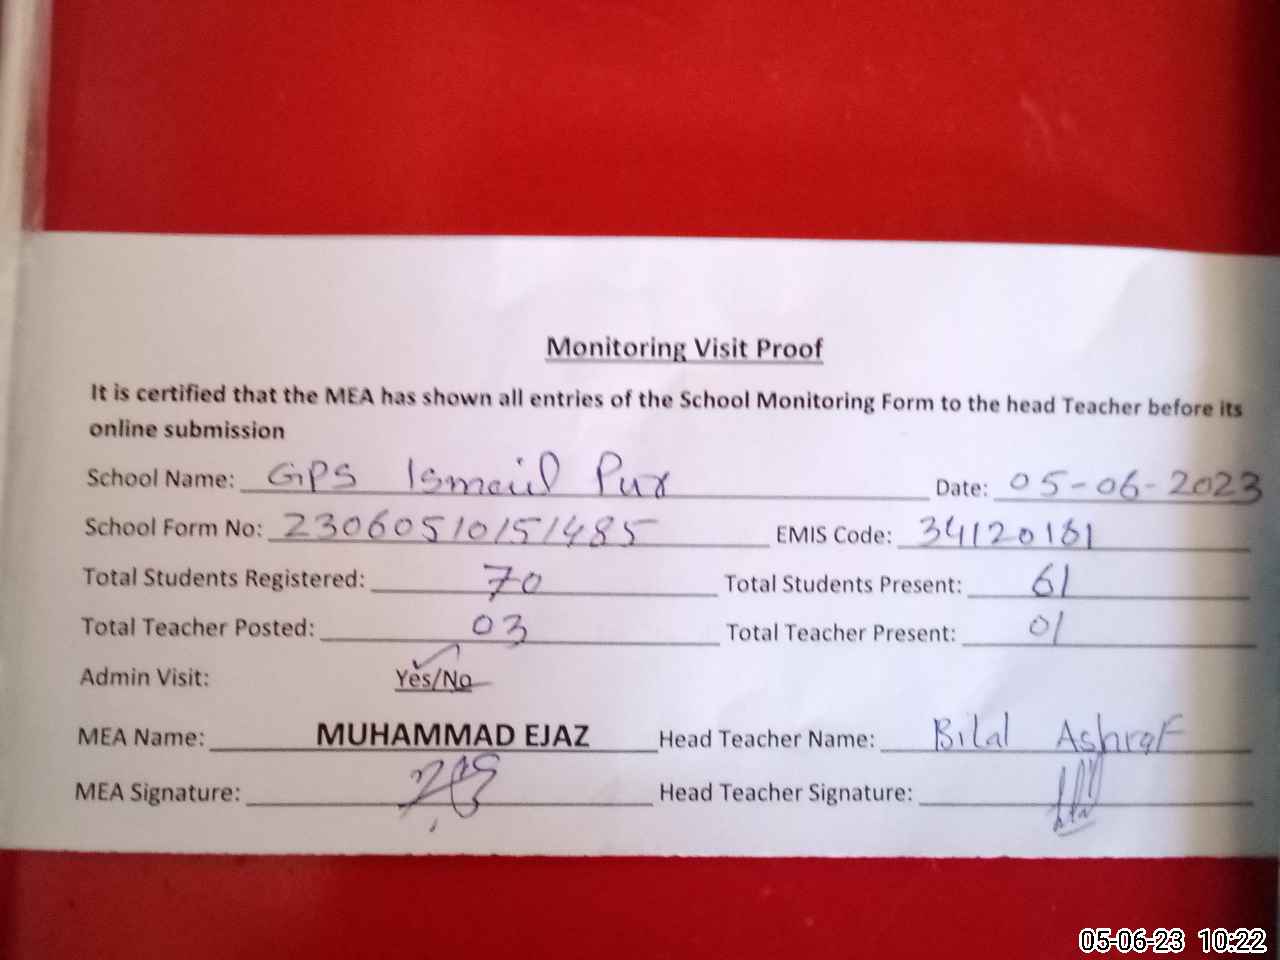 Monitoring Visit Proof
It is certified that the MEA has shown all entries of the School Monitoring Form to the head Teacher before its
online submission
School Name: GPS Ismail Pur Date: 05-06-2023
School Form No: 23060510151485 EMIS Code: 34120181
Total Students Registered: 70 Total Students Present: 61
Total Teacher Posted: 03 Total Teacher Present: 01
Admin Visit: Yes/No
MEA Name: MUHAMMAD EJAZ Head Teacher Name: Bilal Ashraf
MEA Signature: Head Teacher Signature:
05-06-23 10:22